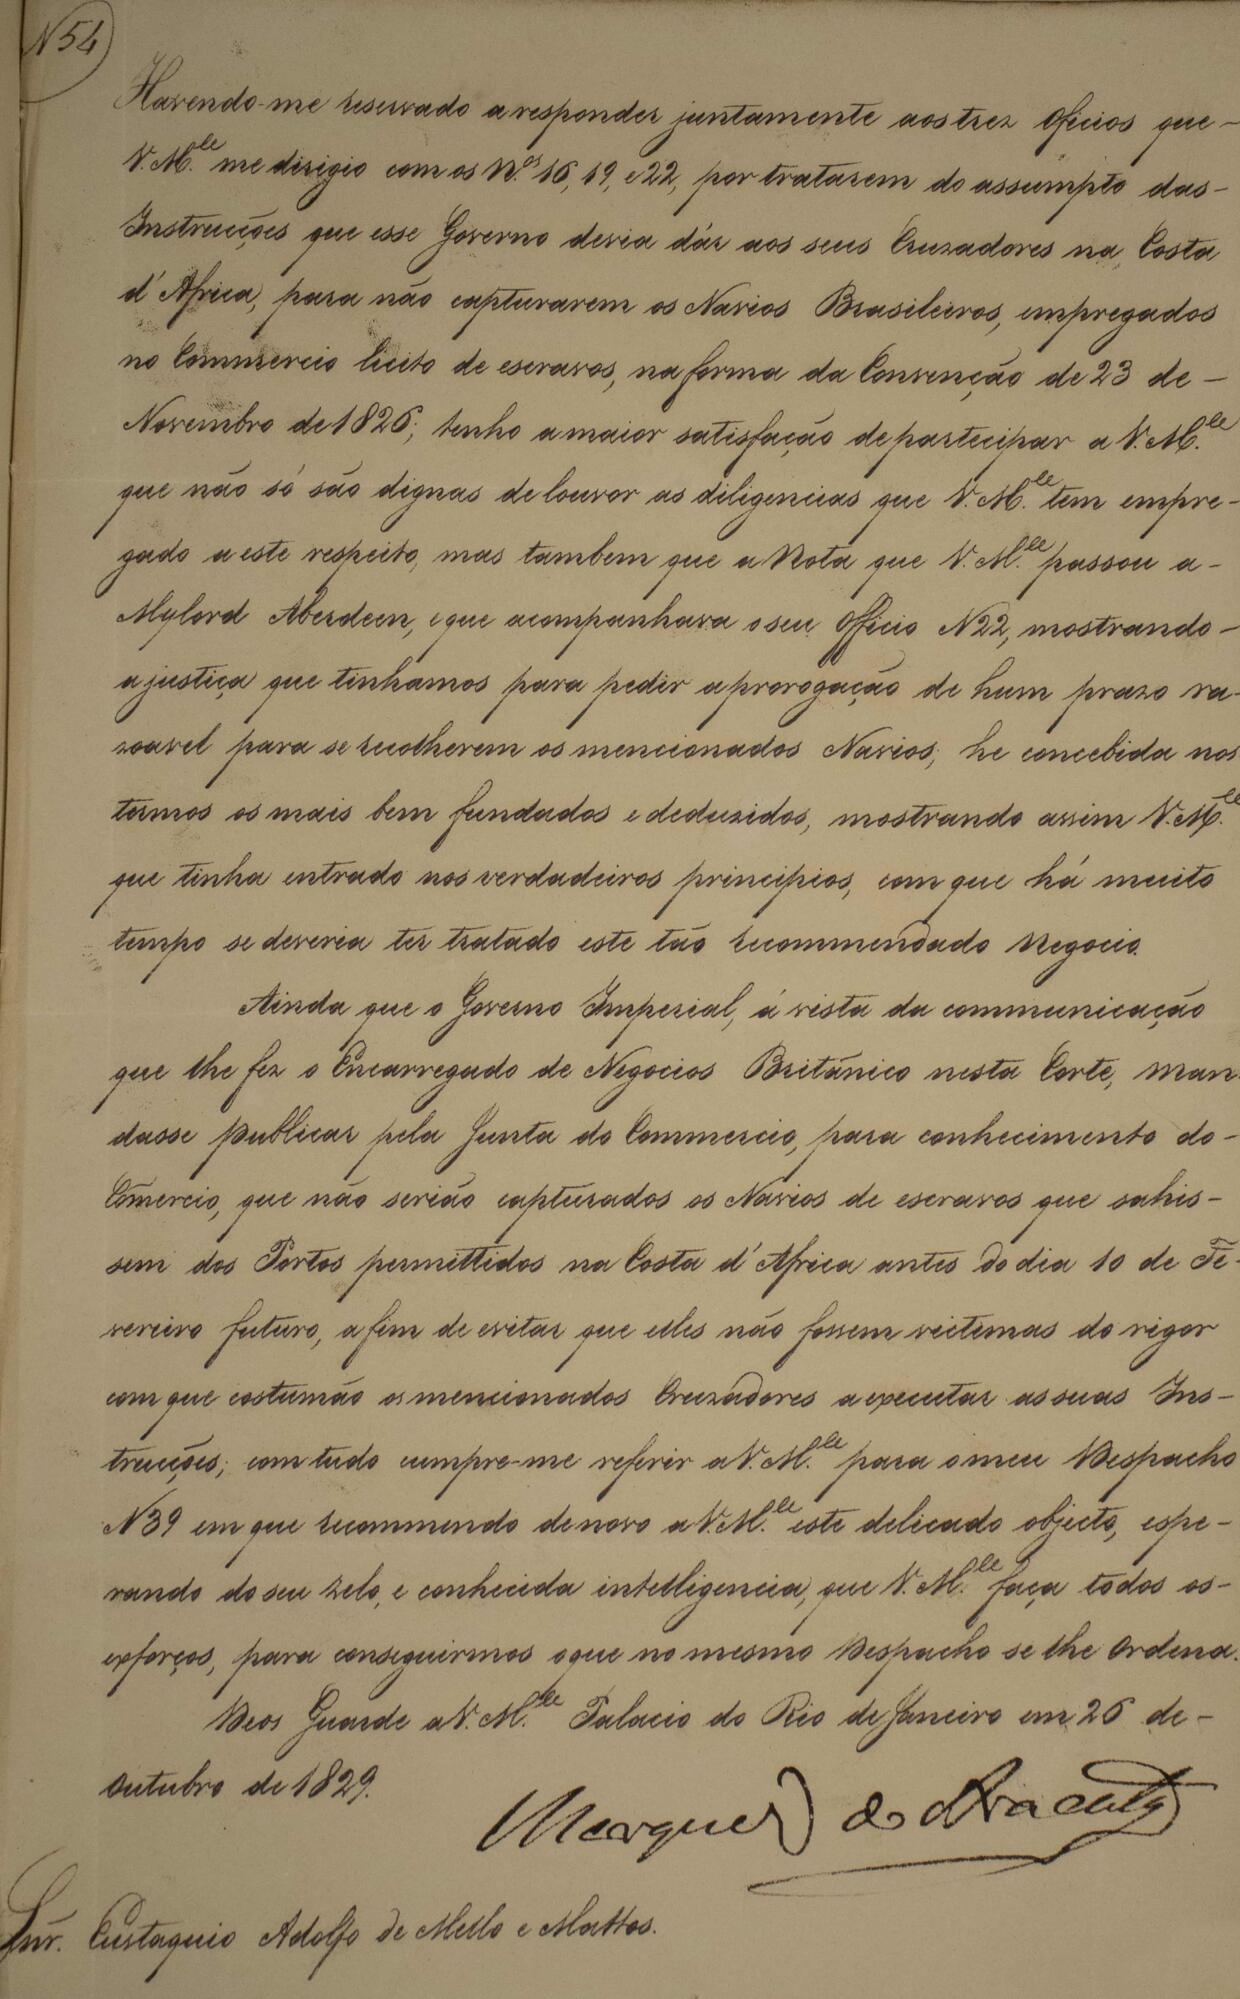 N 54
Havendo-me reservado a responder juntamente aos trez Oficios que
V.M.ce me dirigio com os N.os 16, 19, e 22, por tratarem do assumpto das
Instrucções que esse Governo devia dár aos seus Cruzadores na Costa
d'Africa, para não capturarem os Navios Brasileiros, empregados
no Commercio licito de escravos, na forma da Convenção de 23 de
Novembro de 1826; tenho a maior satisfação de partecipar a V.M.ce
que não só são dignas de louvor as diligencias que V.M.ce tem empre-
gado a este respeito, mas tambem que a Nota que V.M.ce passou a
Mylord Aberdeen, e que acompanhava o seu Officio N 22, mostrando
a justiça que tinhamos para pedir a prorogação de hum prazo ra-
zoavel para se recolherem os mencionados Navios, he concebida nos
termos os mais bem fundados e deduzidos, mostrando assim V.M.ce
que tinha entrado nos verdadeiros principios, com que há muito
tempo se deveria ter tratado este tão recommendado Negocio.
Ainda que o Governo Imperial, á vista da communicação
que lhe fez o Encarregado de Negocios Británico nesta Corte, man-
dasse publicar pela Junta do Commercio, para conhecimento do
Cõmercio, que não serião capturados os Navios de escravos que sahis-
sem dos Portos permittidos na Costa d'Africa antes do dia 10 de Fe-
vereiro futuro, a fim de evitar que elles não fossem victimas do rigor
com que costumão os mencionados Cruzadores a executar as suas Ins-
trucções; com tudo cumpre-me referir a V.M.ce para o meu Despacho
N 39 em que recommendo de novo a V.M.ce este delicado objecto, espe-
rando do seu zelo, e conhecida intelligencia, que V.M.ce faça todos os
exforços, para conseguirmos o que no mesmo Despacho se lhe Ordena.
Deos Guarde a V.M.ce Palacio do Rio de Janeiro em 26 de
Outubro de 1829.
Marquez de Aracaty
Snr. Eustaquio Adolfo de Mello e Mattos.